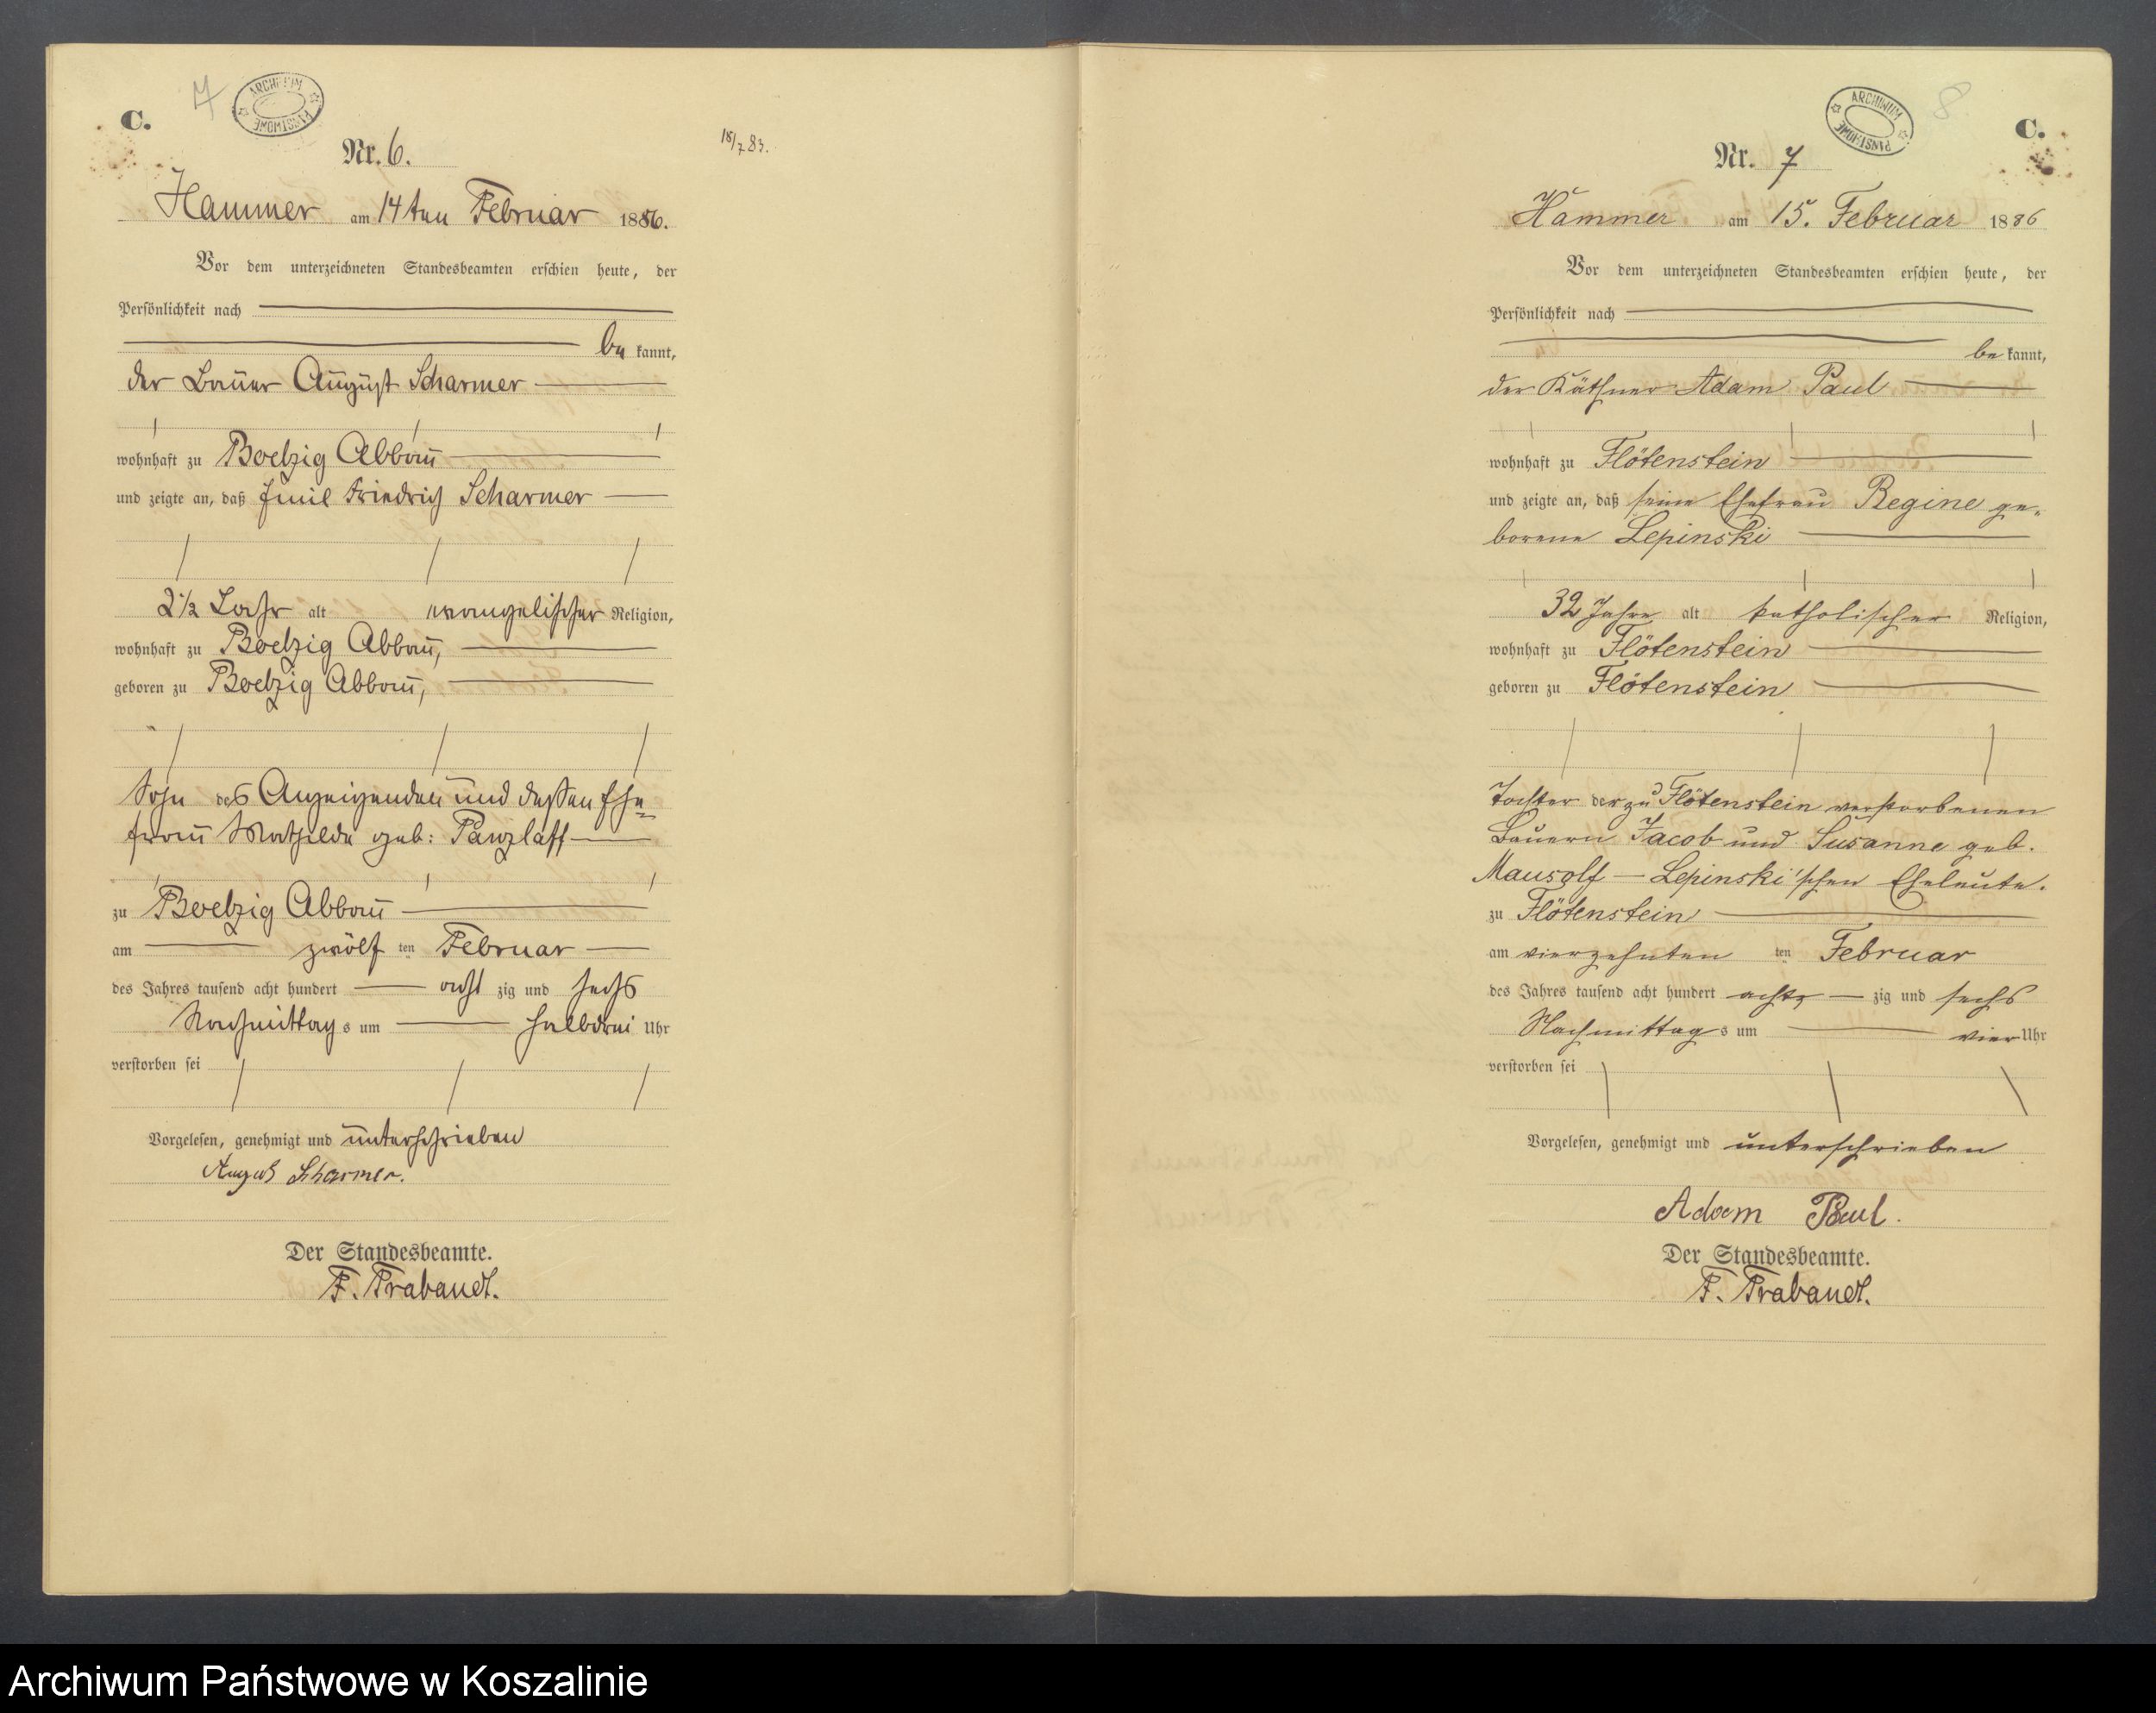 C.
7
ARCHIWUM PAŃSTWOWE
Nr. 6.
18/7 83.
Hammer am 14ten Februar 1886.
Vor dem unterzeichneten Standesbeamten erschien heute, der
Persönlichkeit nach
be kannt,
der Bauer August Scharmer
wohnhaft zu Boelzig Abbau
und zeigte an, daß Emil Friedrich Scharmer
2½ Jahr alt evangelischer Religion,
wohnhaft zu Boelzig Abbau,
geboren zu Boelzig Abbau,
Sohn des Anzeigenden und dessen Ehe=
frau Mathilde geb: Panzlaff
zu Boelzig Abbau
am zwölf ten Februar
des Jahres tausend acht hundert acht zig und sechs
Nachmittag s um halbdrei Uhr
verstorben sei
Vorgelesen, genehmigt und unterschrieben
August Scharmer.
Der Standesbeamte.
F. Trabandt.
8
ARCHIWUM PAŃSTWOWE
C.
Nr. 7
Hammer am 15. Februar 1886
Vor dem unterzeichneten Standesbeamten erschien heute, der
Persönlichkeit nach
be kannt,
der Käthner Adam Paul
wohnhaft zu Flötenstein
und zeigte an, daß seine Ehefrau Regine ge„
borene Lepinski
32 Jahre alt katholischer Religion,
wohnhaft zu Flötenstein
geboren zu Flötenstein
Tochter der zu Flötenstein verstorbenen
Bauern Jacob und Susanne geb.
Mausolf — Lepinski'schen Eheleute.
zu Flötenstein
am vierzehnten ten Februar
des Jahres tausend acht hundert achtz — zig und sechs
Nachmittag s um vier Uhr
verstorben sei
Vorgelesen, genehmigt und unterschrieben
Adam Paul.
Der Standesbeamte.
F. Trabandt.
Archiwum Państwowe w Koszalinie